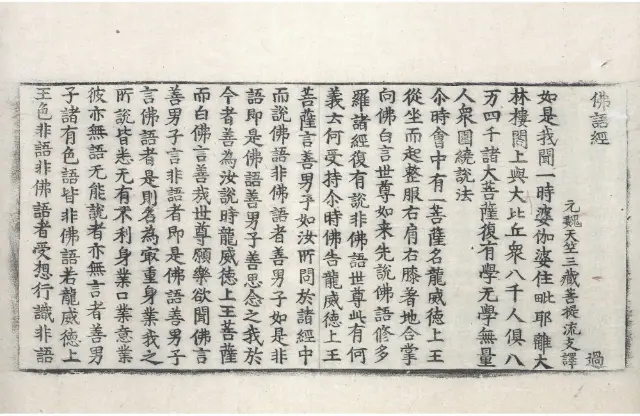 佛語經
元魏天竺三藏菩提流支譯 過
如是我聞一時婆伽婆住毗耶離大
林樓閣上與大比丘衆八千人俱八
万四千諸大菩薩復有學无學無量
人衆圍繞說法
尒時會中有一菩薩名龍威德上王
從坐而起整服右肩右膝著地合掌
向佛白言世尊如來先說佛語修多
羅諸經復有說非佛語世尊此有何
義云何受持尒時佛告龍威德上王
菩薩言善男子如汝所問於諸經中
而說佛語非佛語者善男子如是非
語即是佛語善男子善思念之我於
今者善爲汝說時龍威德上王菩薩
而白佛言善哉世尊願樂欲聞佛言
善男子言非語者即是佛語善男子
言佛語者是則名爲㝡重身業我之
所說皆悉无有不利身業口業意業
彼亦無語无能說者亦無言者善男
子諸有色語皆非佛語若龍威德上
王色非語非佛語者受想行識非語